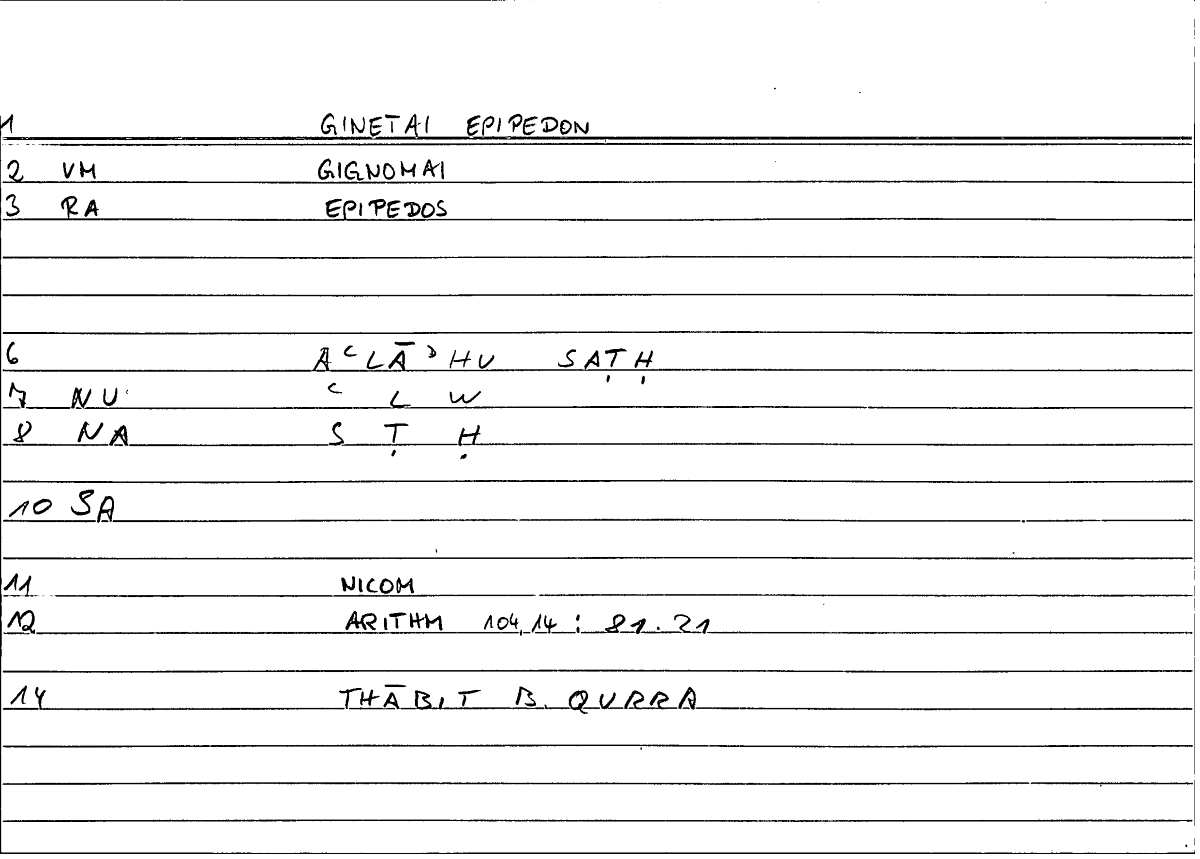 1 GINETAI EPIPEDON
2 VM GIGNOMAI
3 RA EPIPEDOS
6 AʿLĀʾHU SAṬḤ
7 NU ʿ L W
8 NA S Ṭ Ḥ
10 SA
11 NICOM
12 ARITHM 104,14 : 81.21
14 THĀBIT B. QURRA